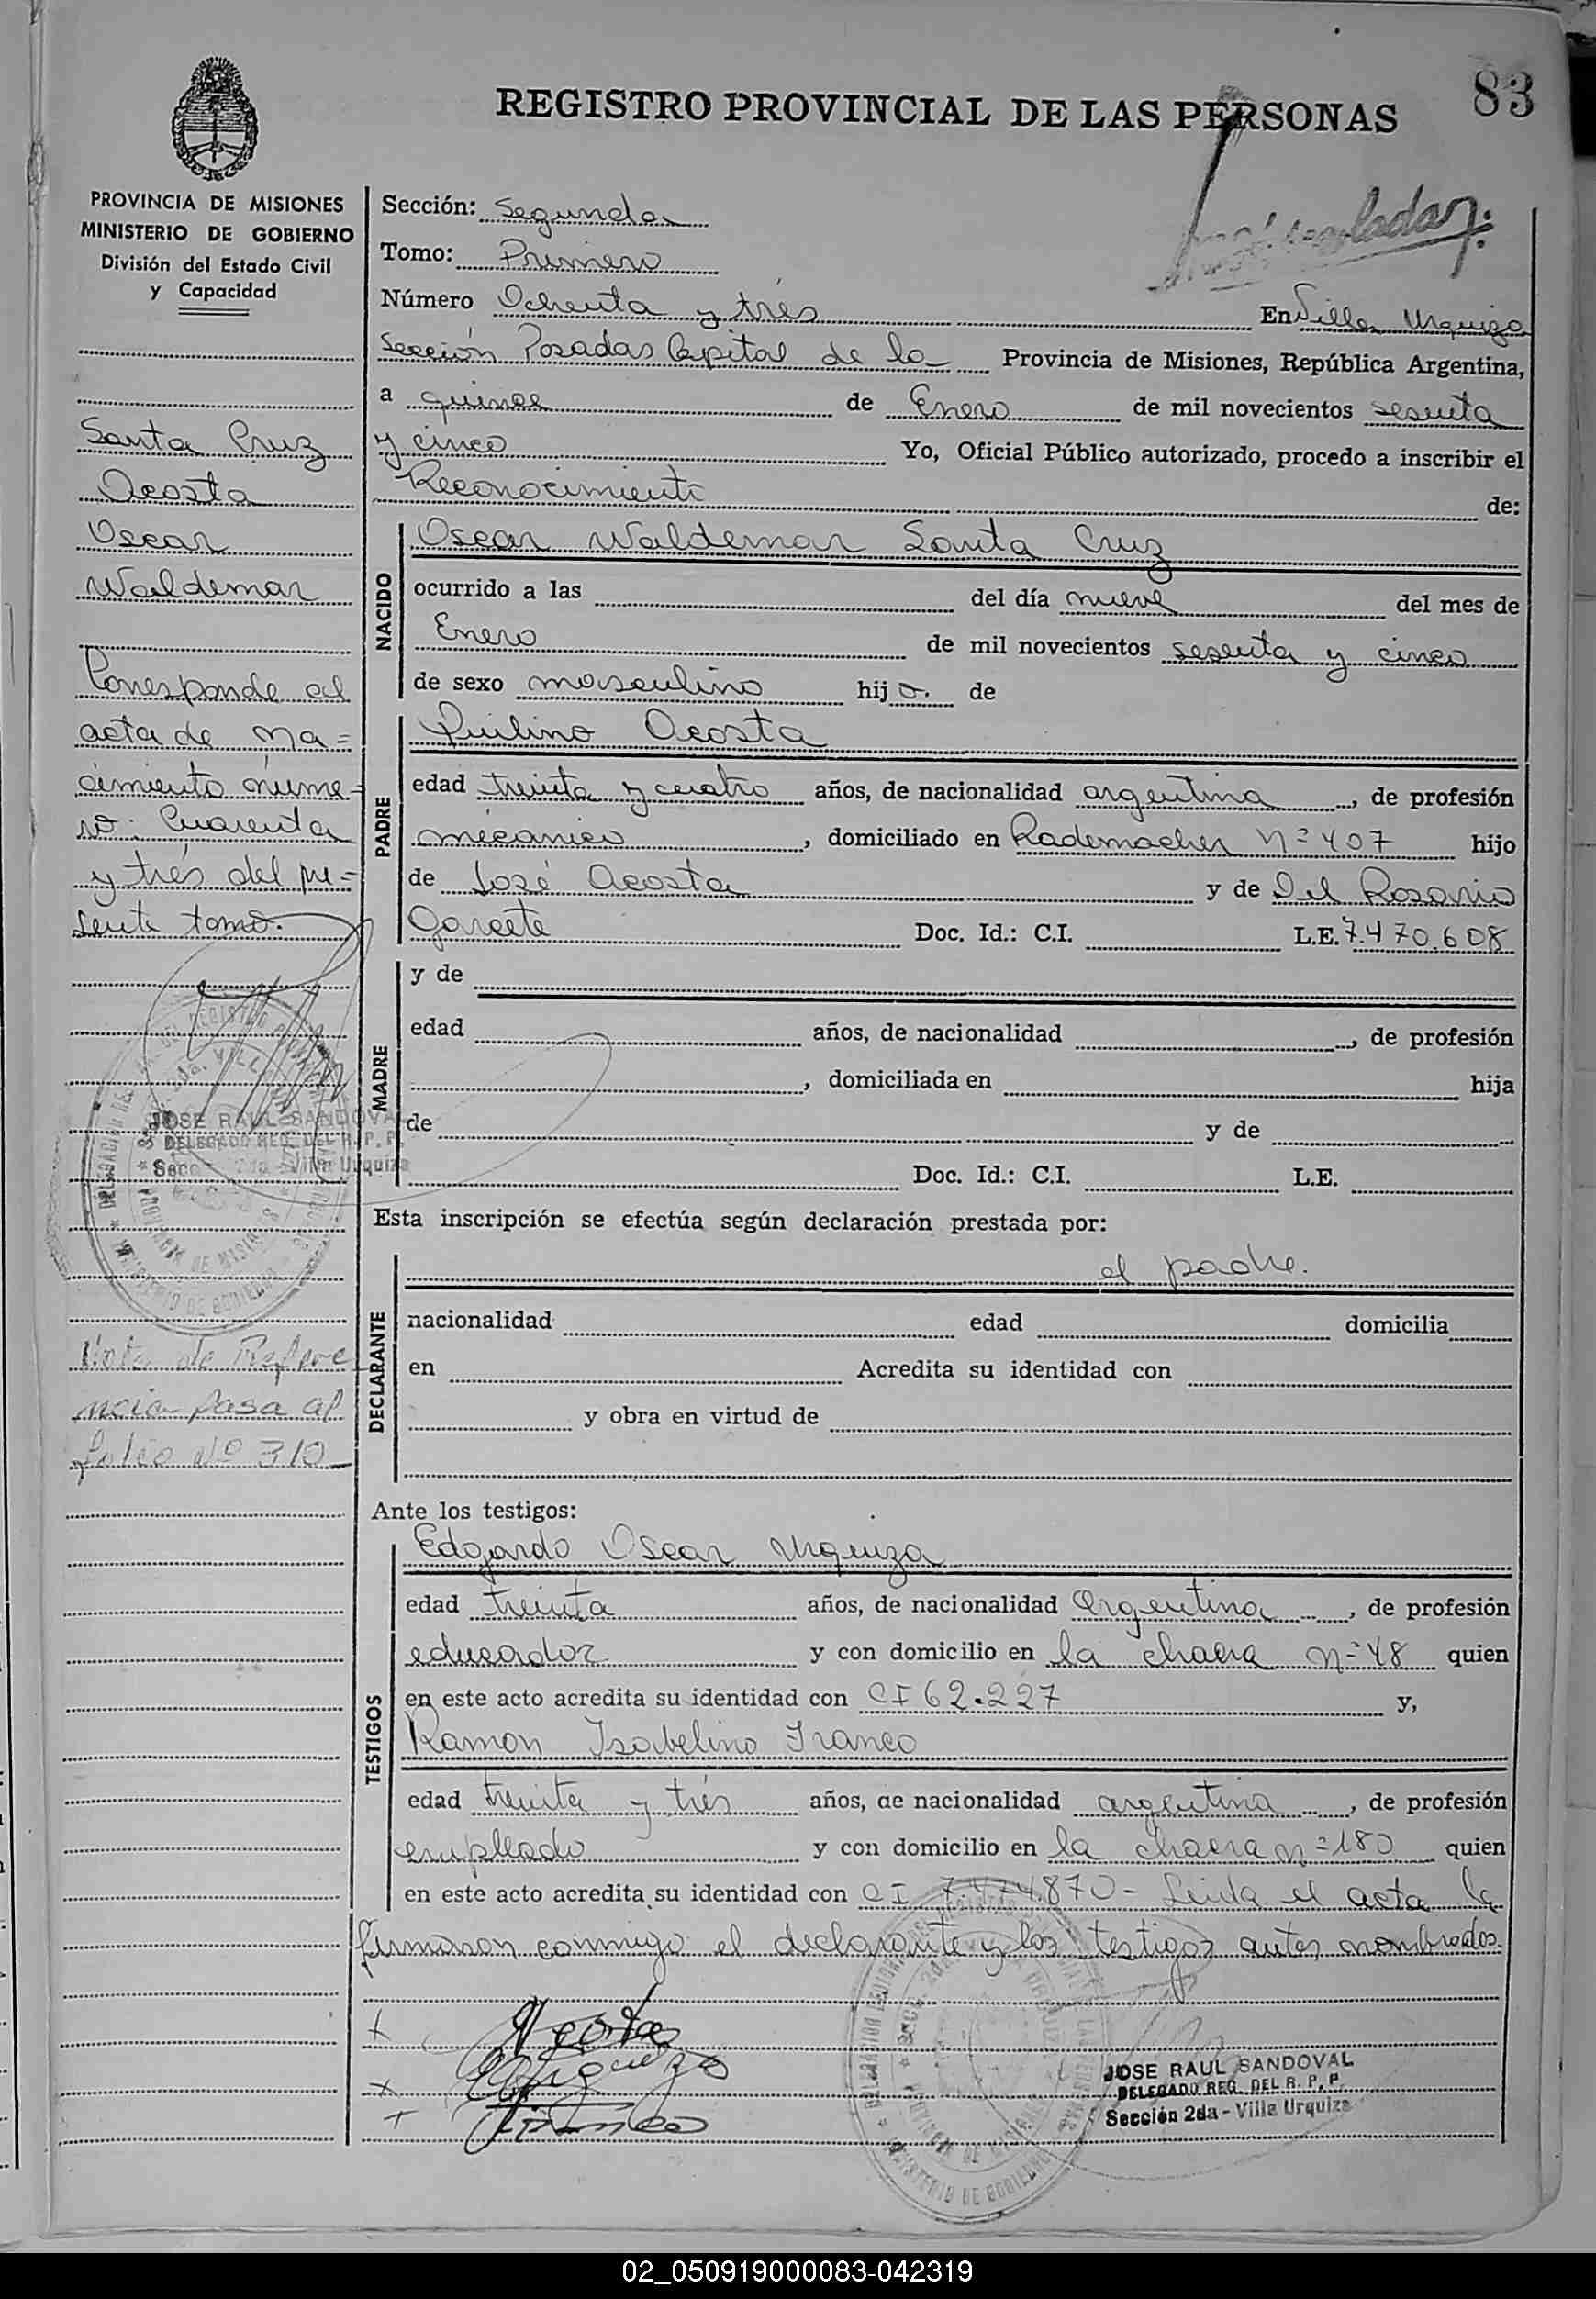 83
REGISTRO PROVINCIAL DE LAS PERSONAS
PROVINCIA DE MISIONES
MINISTERIO DE GOBIERNO
División del Estado Civil
y Capacidad
Sección: Segunda
Tomo: Primero
Número Ochenta y trés En Villa Urquiza
Sección Posadas Capital de la Provincia de Misiones, República Argentina,
a quince de Enero de mil novecientos sesenta
y cinco Yo, Oficial Público autorizado, procedo a inscribir el
Reconocimiento de:
Santa Cruz
Acosta
Oscar
Waldemar
Corresponde al
acta de na=
cimiento núme=
ro: Cuarenta
y trés del pre=
sente tomo.
JOSE RAUL SANDOVAL
DELEGADO REG. DEL R. P. P.
Secc 2da - Villa Urquiza
Nota de Refere
ncia pasa al
folio Nº 310
NACIDO
Oscar Waldemar Santa Cruz
ocurrido a las del día nueve del mes de
Enero de mil novecientos sesenta y cinco
de sexo masculino hijo. de
PADRE
Quilino Acosta
edad treinta y cuatro años, de nacionalidad argentina, de profesión
mécanico, domiciliado en Rademacher n=407 hijo
de José Acosta y de Del Rosario
Garcete Doc. Id.: C.I. L.E. 7.470.608
MADRE
y de
edad años, de nacionalidad , de profesión
, domiciliada en hija
de y de
Doc. Id.: C.I. L.E.
Esta inscripción se efectúa según declaración prestada por:
DECLARANTE
el padre.
nacionalidad edad domicilia
en Acredita su identidad con
y obra en virtud de
Ante los testigos:
TESTIGOS
Edgardo Oscar Urquiza
edad treinta años, de nacionalidad Argentina, de profesión
educador y con domicilio en la chacra n=48 quien
en este acto acredita su identidad con CI 62.227 y,
Ramon Isabelino Franco
edad treinta y trés años, de nacionalidad argentina, de profesión
empleado y con domicilio en la chacra n=180 quien
en este acto acredita su identidad con CI 7.474.870- Leida el acta la
firmaron conmigo el declarante y los testigos antes nombrados.
Acosta
Urquiza
Franco
JOSE RAUL SANDOVAL
DELEGADO REG. DEL R. P. P.
Sección 2da - Villa Urquiza
02_050919000083-042319